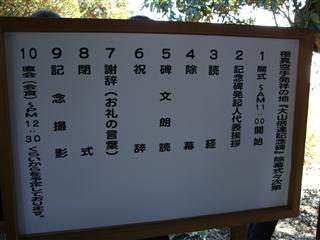 極真空手発祥の地『大山倍達記念碑』除幕式々次第
1 開式 AM11:00開始
2 記念碑発起人代表挨拶
3 読経
4 除幕
5 碑文朗読
6 祝辞
7 謝辞(お礼の言葉)
8 閉式
9 記念撮影
10 直会(会食)PM12:30くらいから予定しております。